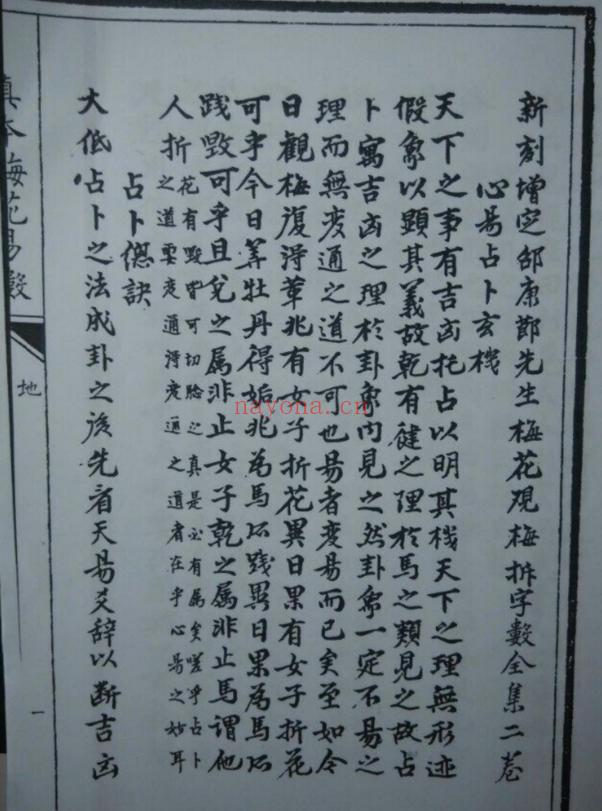 新刻增定邵康節先生梅花观梅拆字數全集二卷
心易占卜玄機
天下之事有吉凶托占以明其机天下之理無形迹
假象以顕其義故乾有健之理於馬之類見之故占
卜寓吉凶之理於卦象内見之然卦象一定不易之
理而無变通之道不可也易者变易而已矣至如今
日觀梅復得革兆有女子折花異日果有女子折花
可乎今日筭牡丹得姤兆為馬所踐異日果為馬所
踐毁可乎且兌之属非止女子乾之属非止馬谓他
人折花有毁皆可切验之真是必有属矣嗟乎占卜
之道要变通得变通之道者在乎心易之妙耳
占卜偬訣
大低占卜之法成卦之後先看天易爻辞以断吉凶
真本梅花易數
地
一
nayona.cn